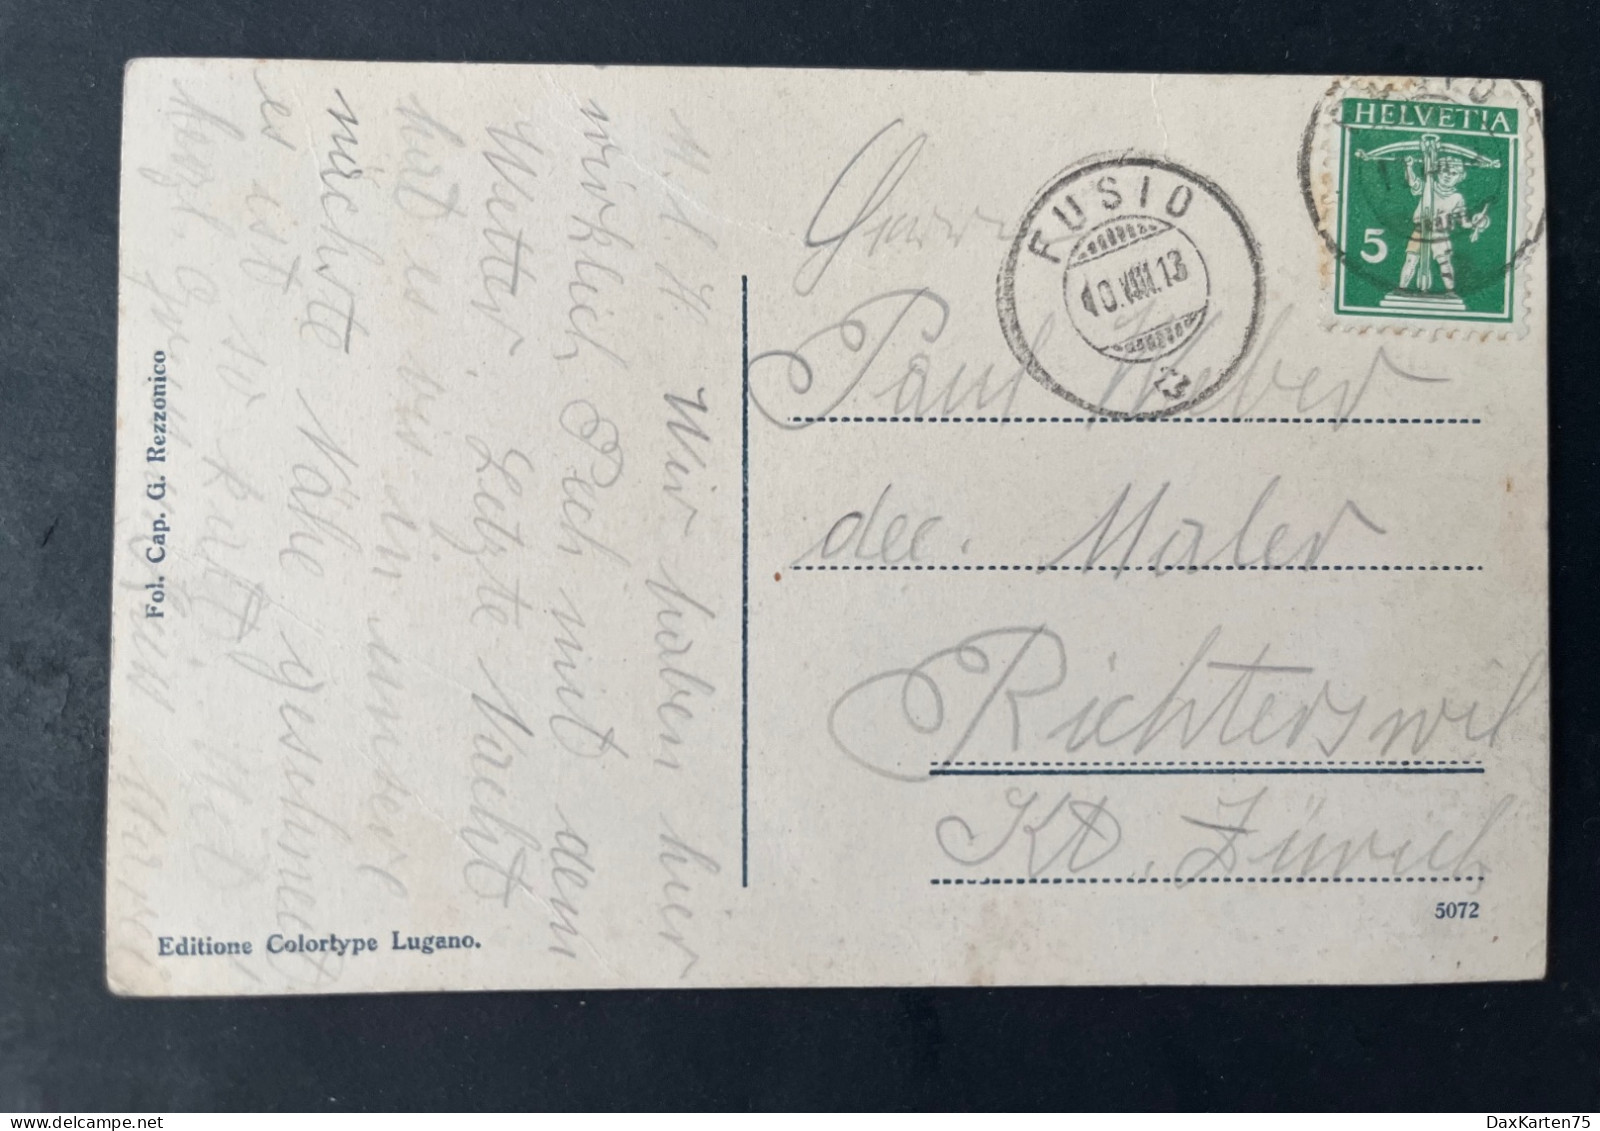 M. l. H. Wir haben hier
wirklich Pech mit dem
Wetter. Letzte Nacht
hat es bis in unsere
nächste Nähe geschneit
es ist so kalt. Mit
herzl. Gruss
Fot. Cap. G. Rezzonico
Editione Colortype Lugano.
HELVETIA
5
FUSIO
10.VIII.13
Herrn
Paul Weber
dec. Maler
Richterswil
Kt. Zürich
5072
delcampe.net
DaxKarten75